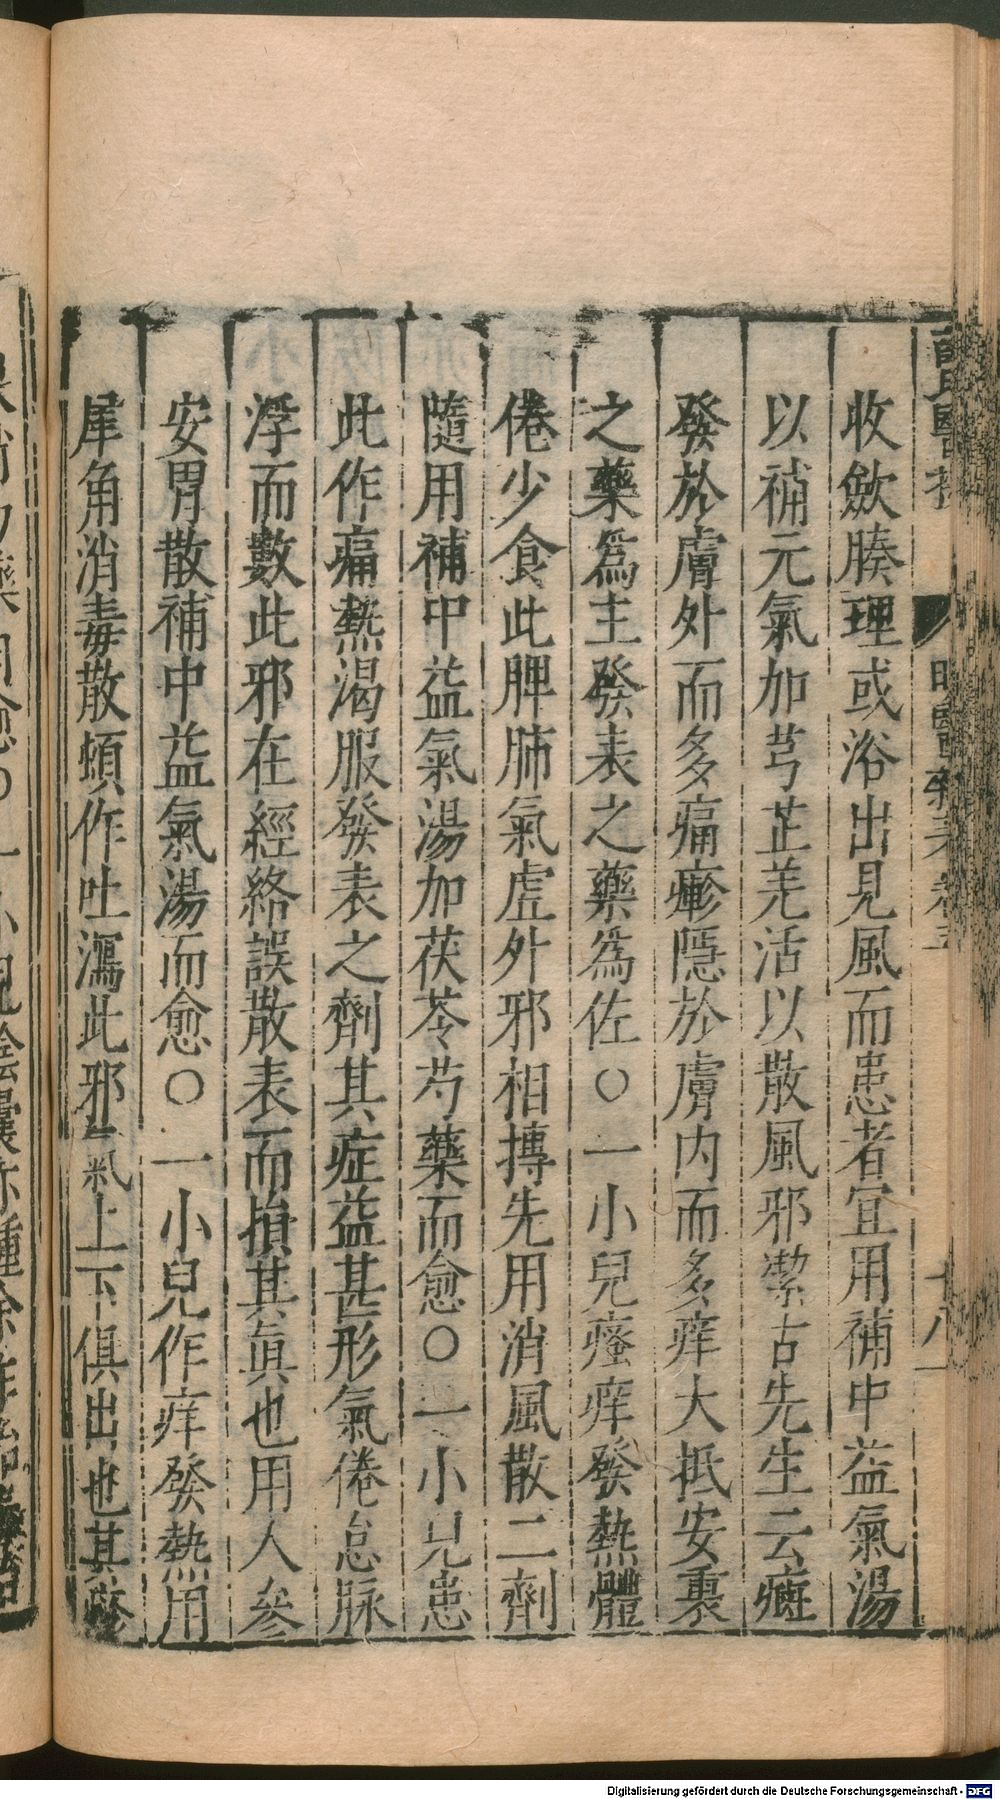 收斂腠理或浴出見風而患者宜用補中益氣湯
以補元氣加芎芷羌活以散風邪㓗古先生云癍
發於膚外而多痛瘮隱於膚内而多痒大抵安裏
之藥爲主發表之藥爲佐○一小兒瘙痒發熱體
倦少食此脾肺氣虛外邪相摶先用消風散二劑
隨用補中益氣湯加茯苓芍藥而愈○一小兒患
此作痛熱渴服發表之劑其症益甚形氣倦怠脉
浮而數此邪在經絡誤散表而損其眞也用人參
安胃散補中益氣湯而愈○一小兒作痒發熱用
犀角消毒散頓作吐瀉此邪氣上下俱出也其
Digitalisierung gefördert durch die Deutsche Forschungsgemeinschaft - DFG